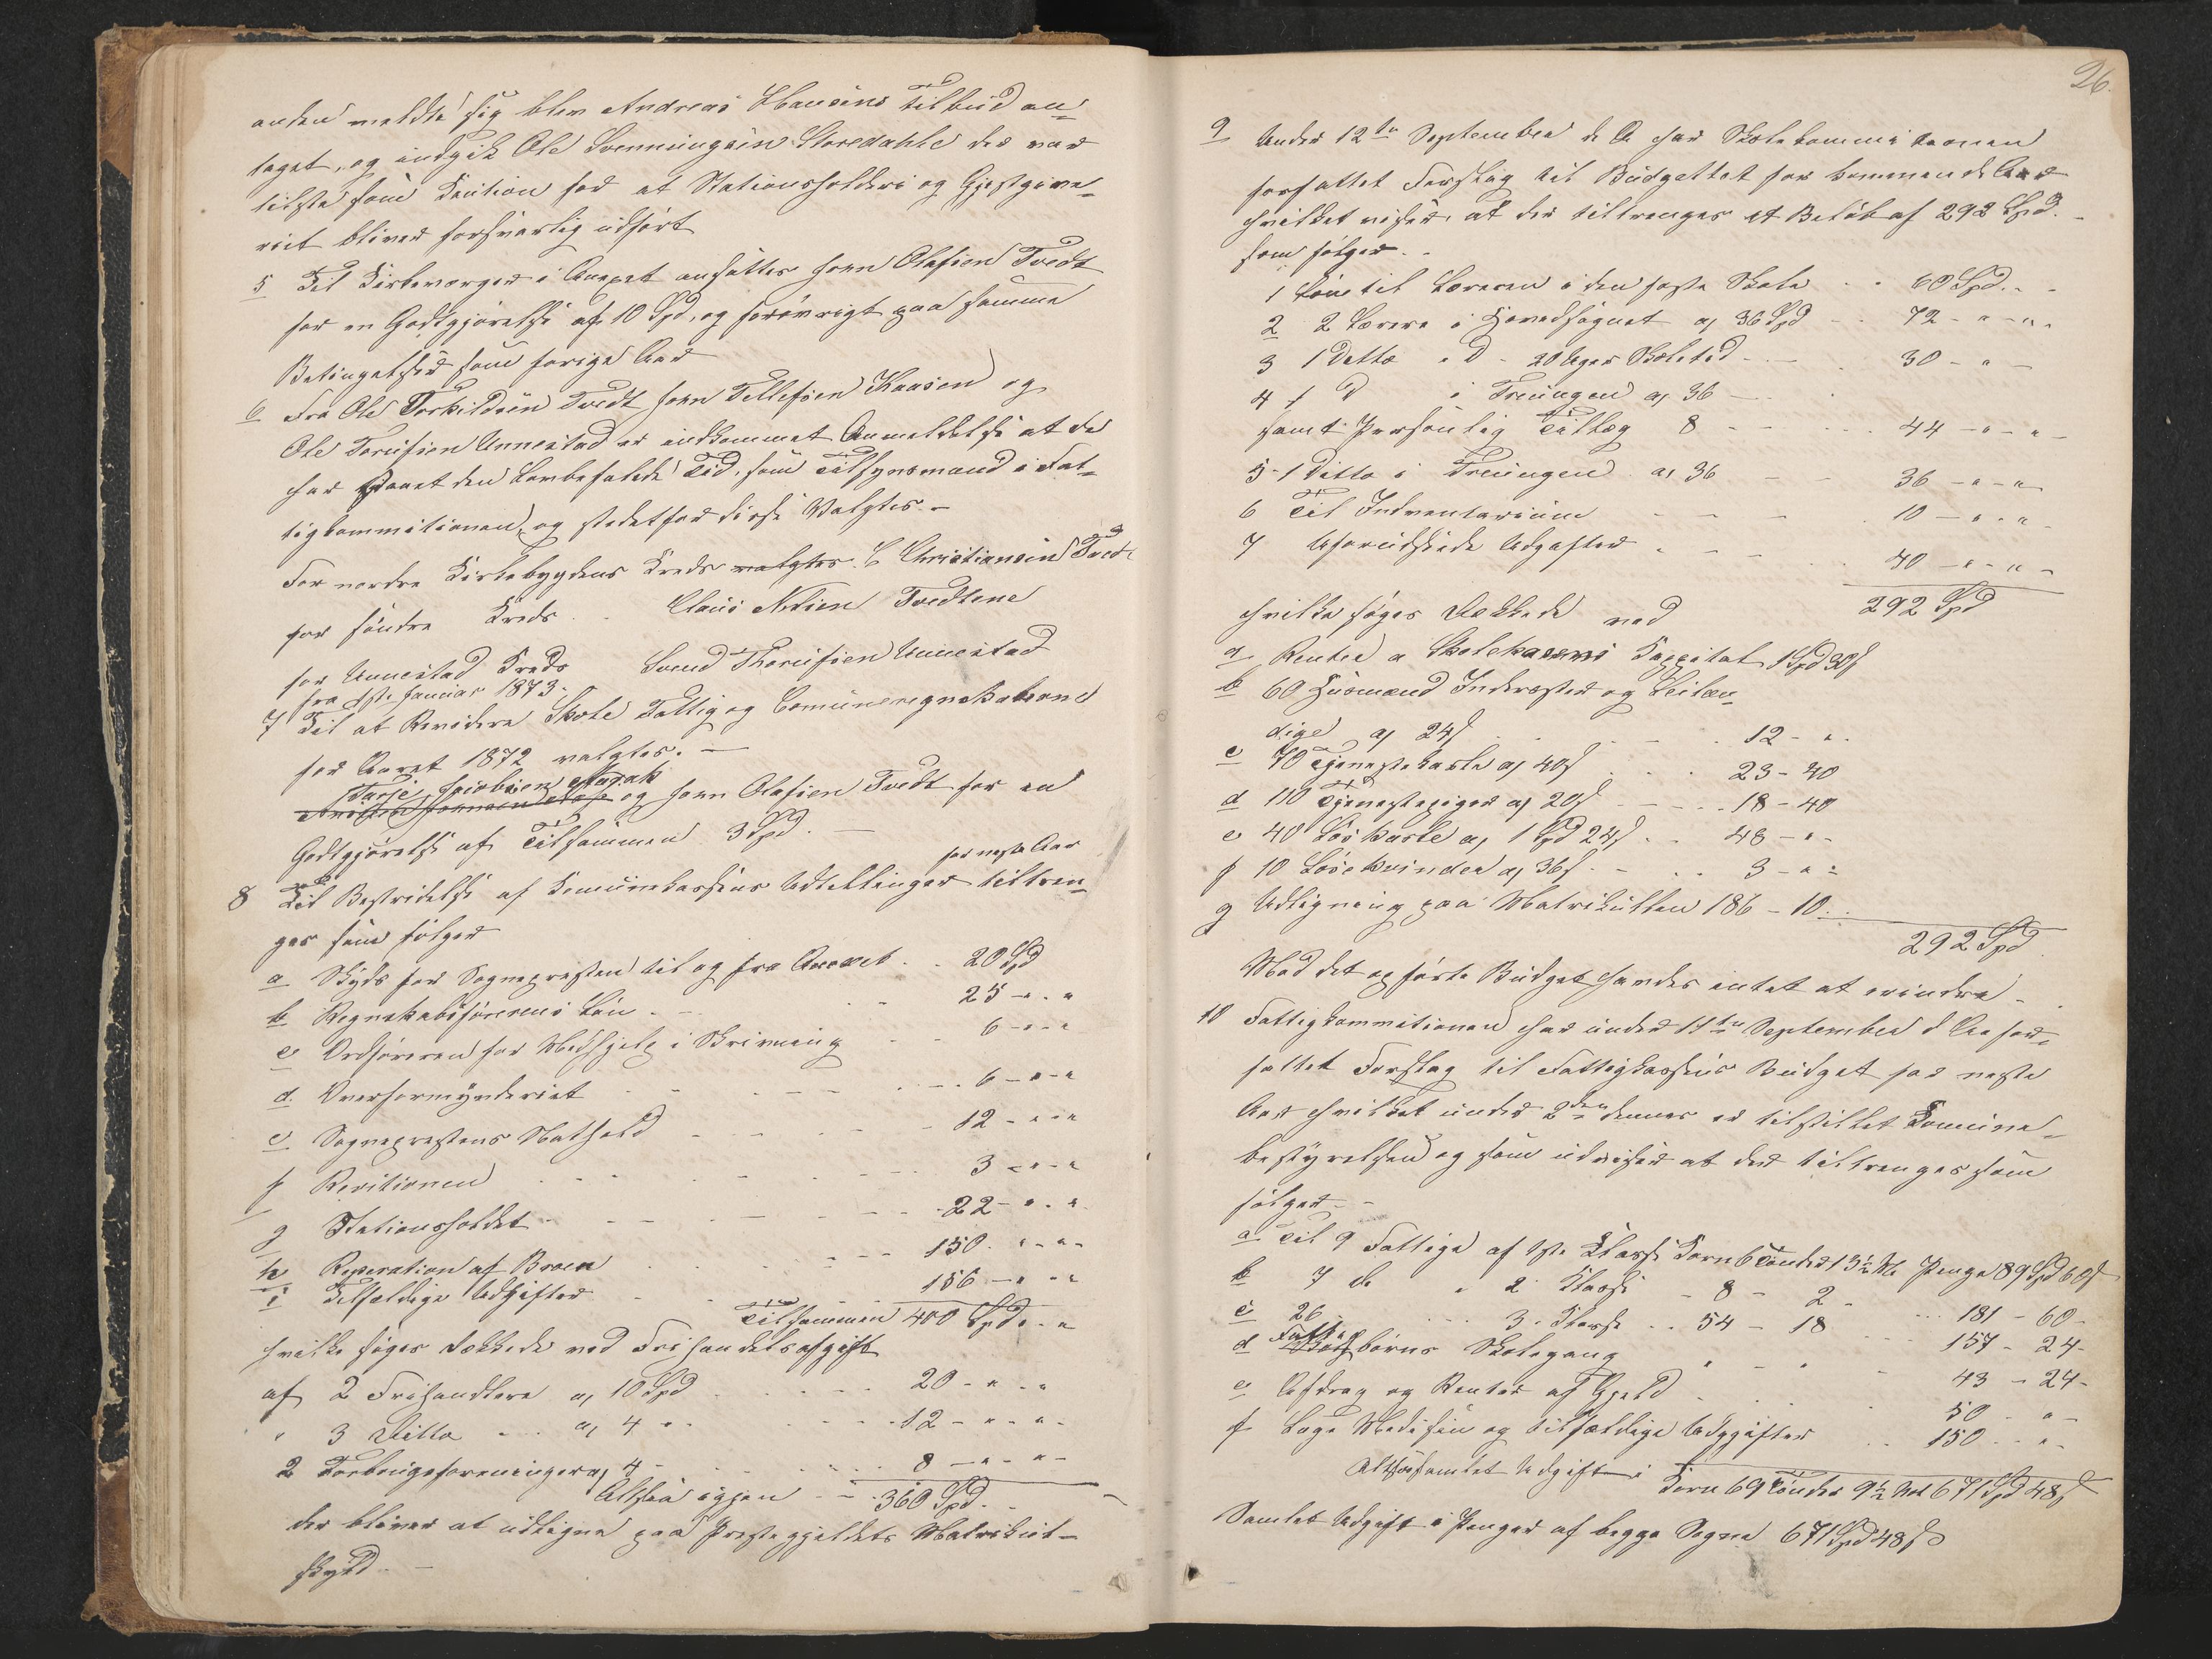 anden meldte sig blev Andreas Hansens Tilbud an-
taget, og indgik Ole Svenningsen Storedahle der var
tilste som Kaution for at Stationsholderi og Gjestgive-
riet bliver forsvarlig udført
5 Til Kirkeværger i Anexet ansattes John Olafsen Tvedt
for en Godtgjørelse af 10 Spd, og forøvrigt paa samme
Betingelser som forige Aar
6 Fra Ole Torkildsen Tvedt John Tellefsen Kaasen og
Ole Terjusen Unnestad er indkommet Anmeldelse at de
har staaet den Lovbefalede Tid, som Tilsynsmand i Fat-
tigkommitionen, og stedetfor disse Valgtes. -
For nordre Kirkebygdens Kreds valgtes C Christiansen Tved
for søndre Kreds . . Claus Nilsen Tvedtene
for Unnestad Kreds Svend Therjusen Unnestad
fra 1ste Januar 1873.
7 Til at Revidere Skole Fattig og Comuneregnskaberne
for Aaret 1872 valgtes. -
Tarje Jacobsen Haugak
og John Olafsen Tvedt for en
Godtgjørelse af Tilsammen 3 Spd. -
for neste Aar
8 Til Bestridelse af Komunekassens Udtellinger tiltren-
ges som følger
a Skyds for Sognepresten til og fra Anexet . . 20 Spd
b Regnskabsførerens Løn . - . - 25 - " - "
c Ordføreren for Medhjelp i Skrivning - - 6 - " - "
d. Overformynderiet - - - - - 6 - " - "
e Sogneprestens Nathold - - - - 12 - " - "
f Revitionen - - - - 3 - " - "
g Stationsholdet - - - - - 22 - " - "
h Reperation af Broen . . - - - 150 " - " -
i Tilfældige Udgifter - - - 156 - " - "
Tilsammen 400 Spd " - "
hvilke søges dækkede ved Frihandelsafgift
af 2 Frihandlere a 10 Spd . . . . 20 - " - "
" 3 Ditto - . . a 4 " - . . . 12 - " - " -
2 Forbrugsforeninger a 4 - . . . . 8 - " - " -
Altsaa igjen - - 360 Spd. -
der bliver at udligne paa Prestegjeldets Matrikul-
skyld. -
26.
9 Under 12te September d. A har Skolekommitionen
forfattet Forslag til Budgettet for kommende Aar
hvilket viser, at der tiltrenges et Beløb af 292 Spd. -
som følger. .
1 Løn til Læreren i den faste Skole . . 60 Spd. . -
2 2 Lærere i Hovedsognet a 36 Spd - - 72 - " - " -
3 1 Ditto " D - 20 Uger Skoletid - - - 30 - " -
4 1 D i Treungen a 36 - - .
samt Personlig Tillæg 8 - - - - 44 - " - " -
5 - 1 Ditto i Treungen a 36 - - 36 - " - "
6 Til Indventarium - - - 10 - " - " -
7 Uforudseede Udgifter . - - 40 - " - " -
292 Spd
hvilke søges Dækkede ved
a Renter a Skolekassens Kappital 1 Spd 30 s
b 60 Husmænd Inderster og Leilæn-
dige a 24 s . . - - . 12 - " .
c 70 Tjenestekarle a 40 s . . . 23 - 40
d 110 Tjenestepiger a 20 s . - . . 18 - 40
e 40 Løskarle a 1 Spd 24 s . . 48 - " -
f 10 Løsekvinder a 36 s . - . . 3 - " -
g Udligning paa Matrikullen 186 - 10 . .
292 Spd
Mod det opførte Budget handes intet at erindre - .
10 Fattigkommitionen har under 11te September d Aa for-
fattet Forslag til Fattigkassens Budget for neste
Aar hvilket under 2den dennes er tilstillet Komune-
bestyrelsen og som udviser at der tiltrenges som
følger. -
a Til 9 Fattige af 1ste Klasse Korn 6 Tønder 13½ Mt Penge 89 Spd 60 s
b 7 do " 2 Klasse - 8 - 2 - . . 181 - 60 -
c 26 . . . 3. Klasse . . 54 - 18 - - - 157 - 24 -
Fattig
d børns Skolegang " - " - - 43 - 24 -
e Afdrag og Renter af Gjæld . . . 50 - " -
f Læge Medisin og tilfældige Udgifter . . 150 . . " -
Altsaa samlet Udgift i Korn 69 Tønder 9½ Mt 671 Spd 48 s
Samlet Udgift i Penger af begge Sogne 671 Spd 48 s